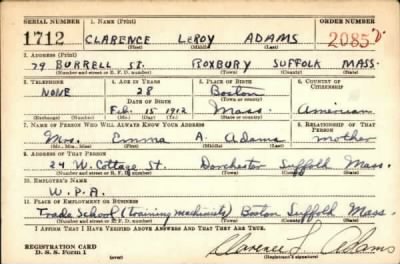 SERIAL NUMBER 1. NAME (Print) ORDER NUMBER
1712 CLARENCE LeROY ADAMS 2085
(First) (Middle) (Last)
2. ADDRESS (Print)
79 BURRELL ST. ROXBURY SUFFOLK MASS.
(Number and street or R. F. D. number) (Town) (County) (State)
3. TELEPHONE 4. AGE IN YEARS 5. PLACE OF BIRTH 6. COUNTRY OF CITIZENSHIP
NONE 28 Boston
DATE OF BIRTH (Town or county)
Feb. 15 1912 Mass. American
(Exchange) (Number) (Mo.) (Day) (Yr.) (State or country)
7. NAME OF PERSON WHO WILL ALWAYS KNOW YOUR ADDRESS 8. RELATIONSHIP OF THAT PERSON
Mrs Emma A. Adams mother
(Mr., Mrs., Miss) (First) (Middle) (Last)
9. ADDRESS OF THAT PERSON
24 W. Cottage St. Dorchester Suffolk Mass.
(Number and street or R. F. D. number) (Town) (County) (State)
10. EMPLOYER'S NAME
W.P.A.
11. PLACE OF EMPLOYMENT OR BUSINESS
Trade School (training machinist) Boston Suffolk Mass.
(Number and street or R. F. D. number) (Town) (County) (State)
I AFFIRM THAT I HAVE VERIFIED ABOVE ANSWERS AND THAT THEY ARE TRUE.
REGISTRATION CARD
D. S. S. Form 1 Clarence L. Adams
(Registrant's signature)